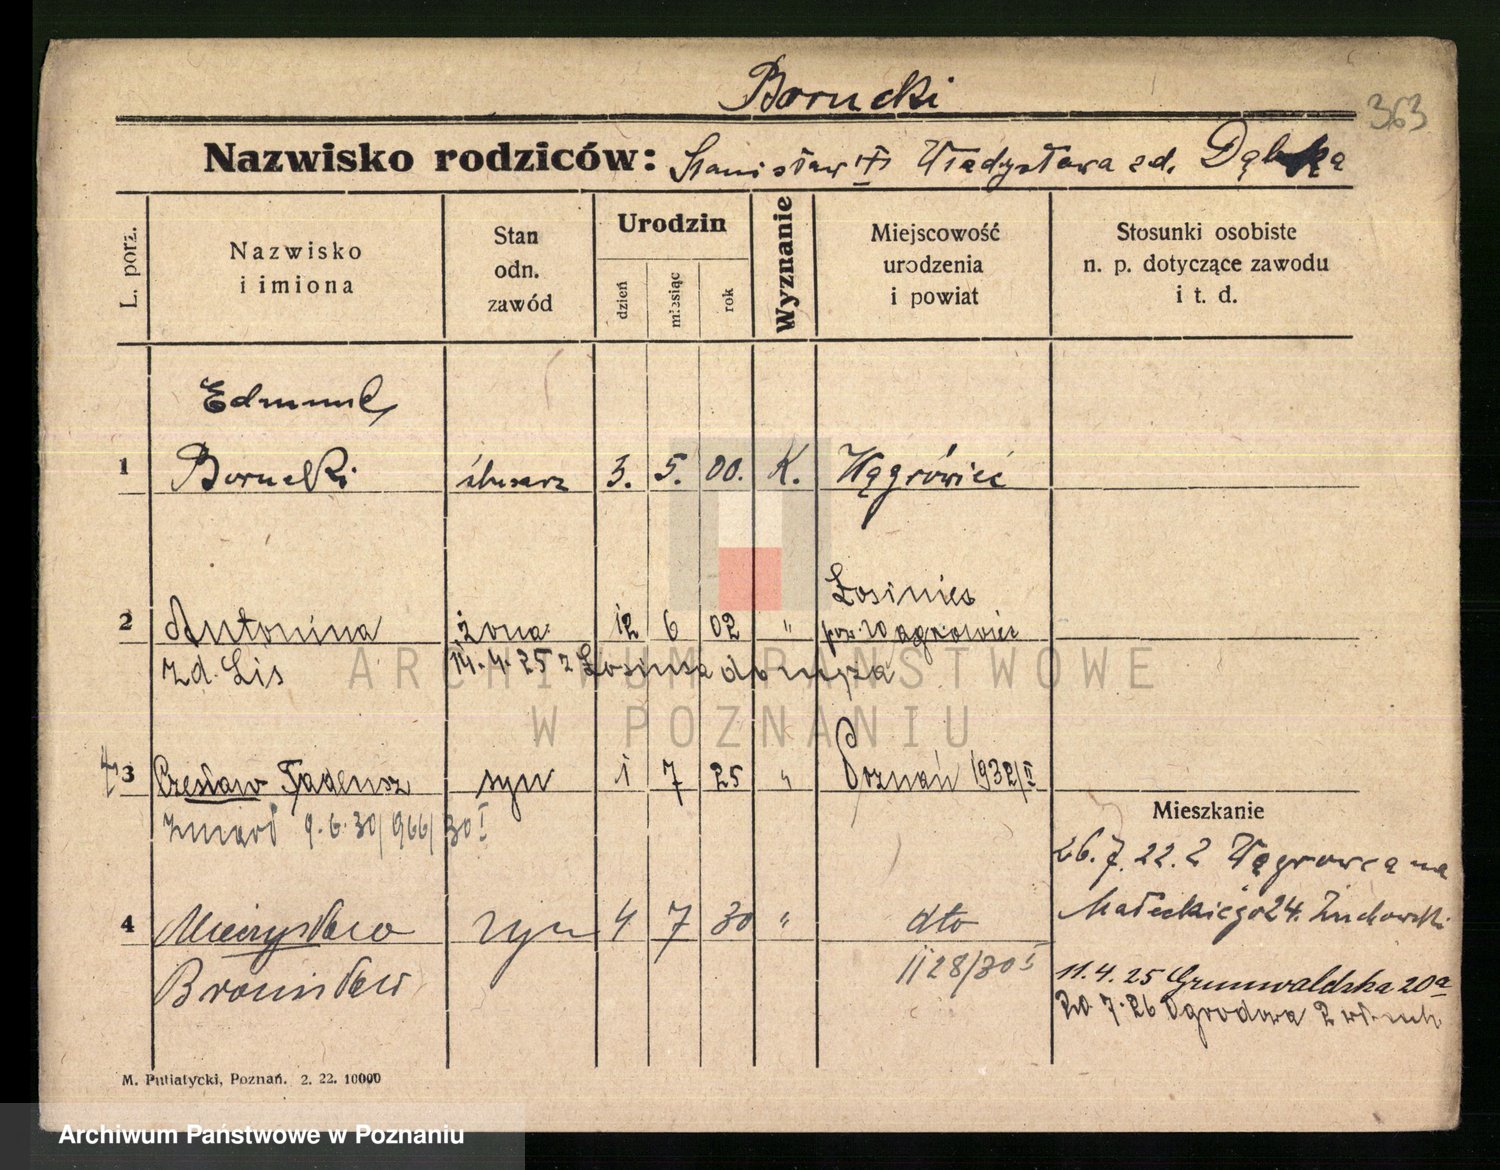 Borucki
363
Nazwisko rodziców: Stanisław Władysława zd.
L. porz.
Nazwisko i imiona
Stan odn. zawód
Urodzin
dzień
miesiąc
rok
Wyznanie
Miejscowość urodzenia i powiat
Stosunki osobiste n. p. dotyczące zawodu i t. d.
Edmund
1 Borucki ślusarz 3. 5. 00. K. Wągrówiec
Łosiniec
2 Antonina żona 12 6 02 " pow. Wągrowiec
zd. Lis 14.4.25 z
3 Czesław Tadeusz syn 1 7 25 " Poznań 1932/I
zmarł 9.6.30/966/30 I
Mieszkanie
26.7.22. z Wągrowca na
Małeckiego 24.
4 Mieczysław syn 4 7 30 " dto
Bronisław 1128/30 I
11.4.25 Grunwaldzka 20a
20 7.26 Ogrodowa 2
M. Putiatycki, Poznań. 2. 22. 10000
ARCHIWUM PAŃSTWOWE
W POZNANIU
Archiwum Państwowe w Poznaniu